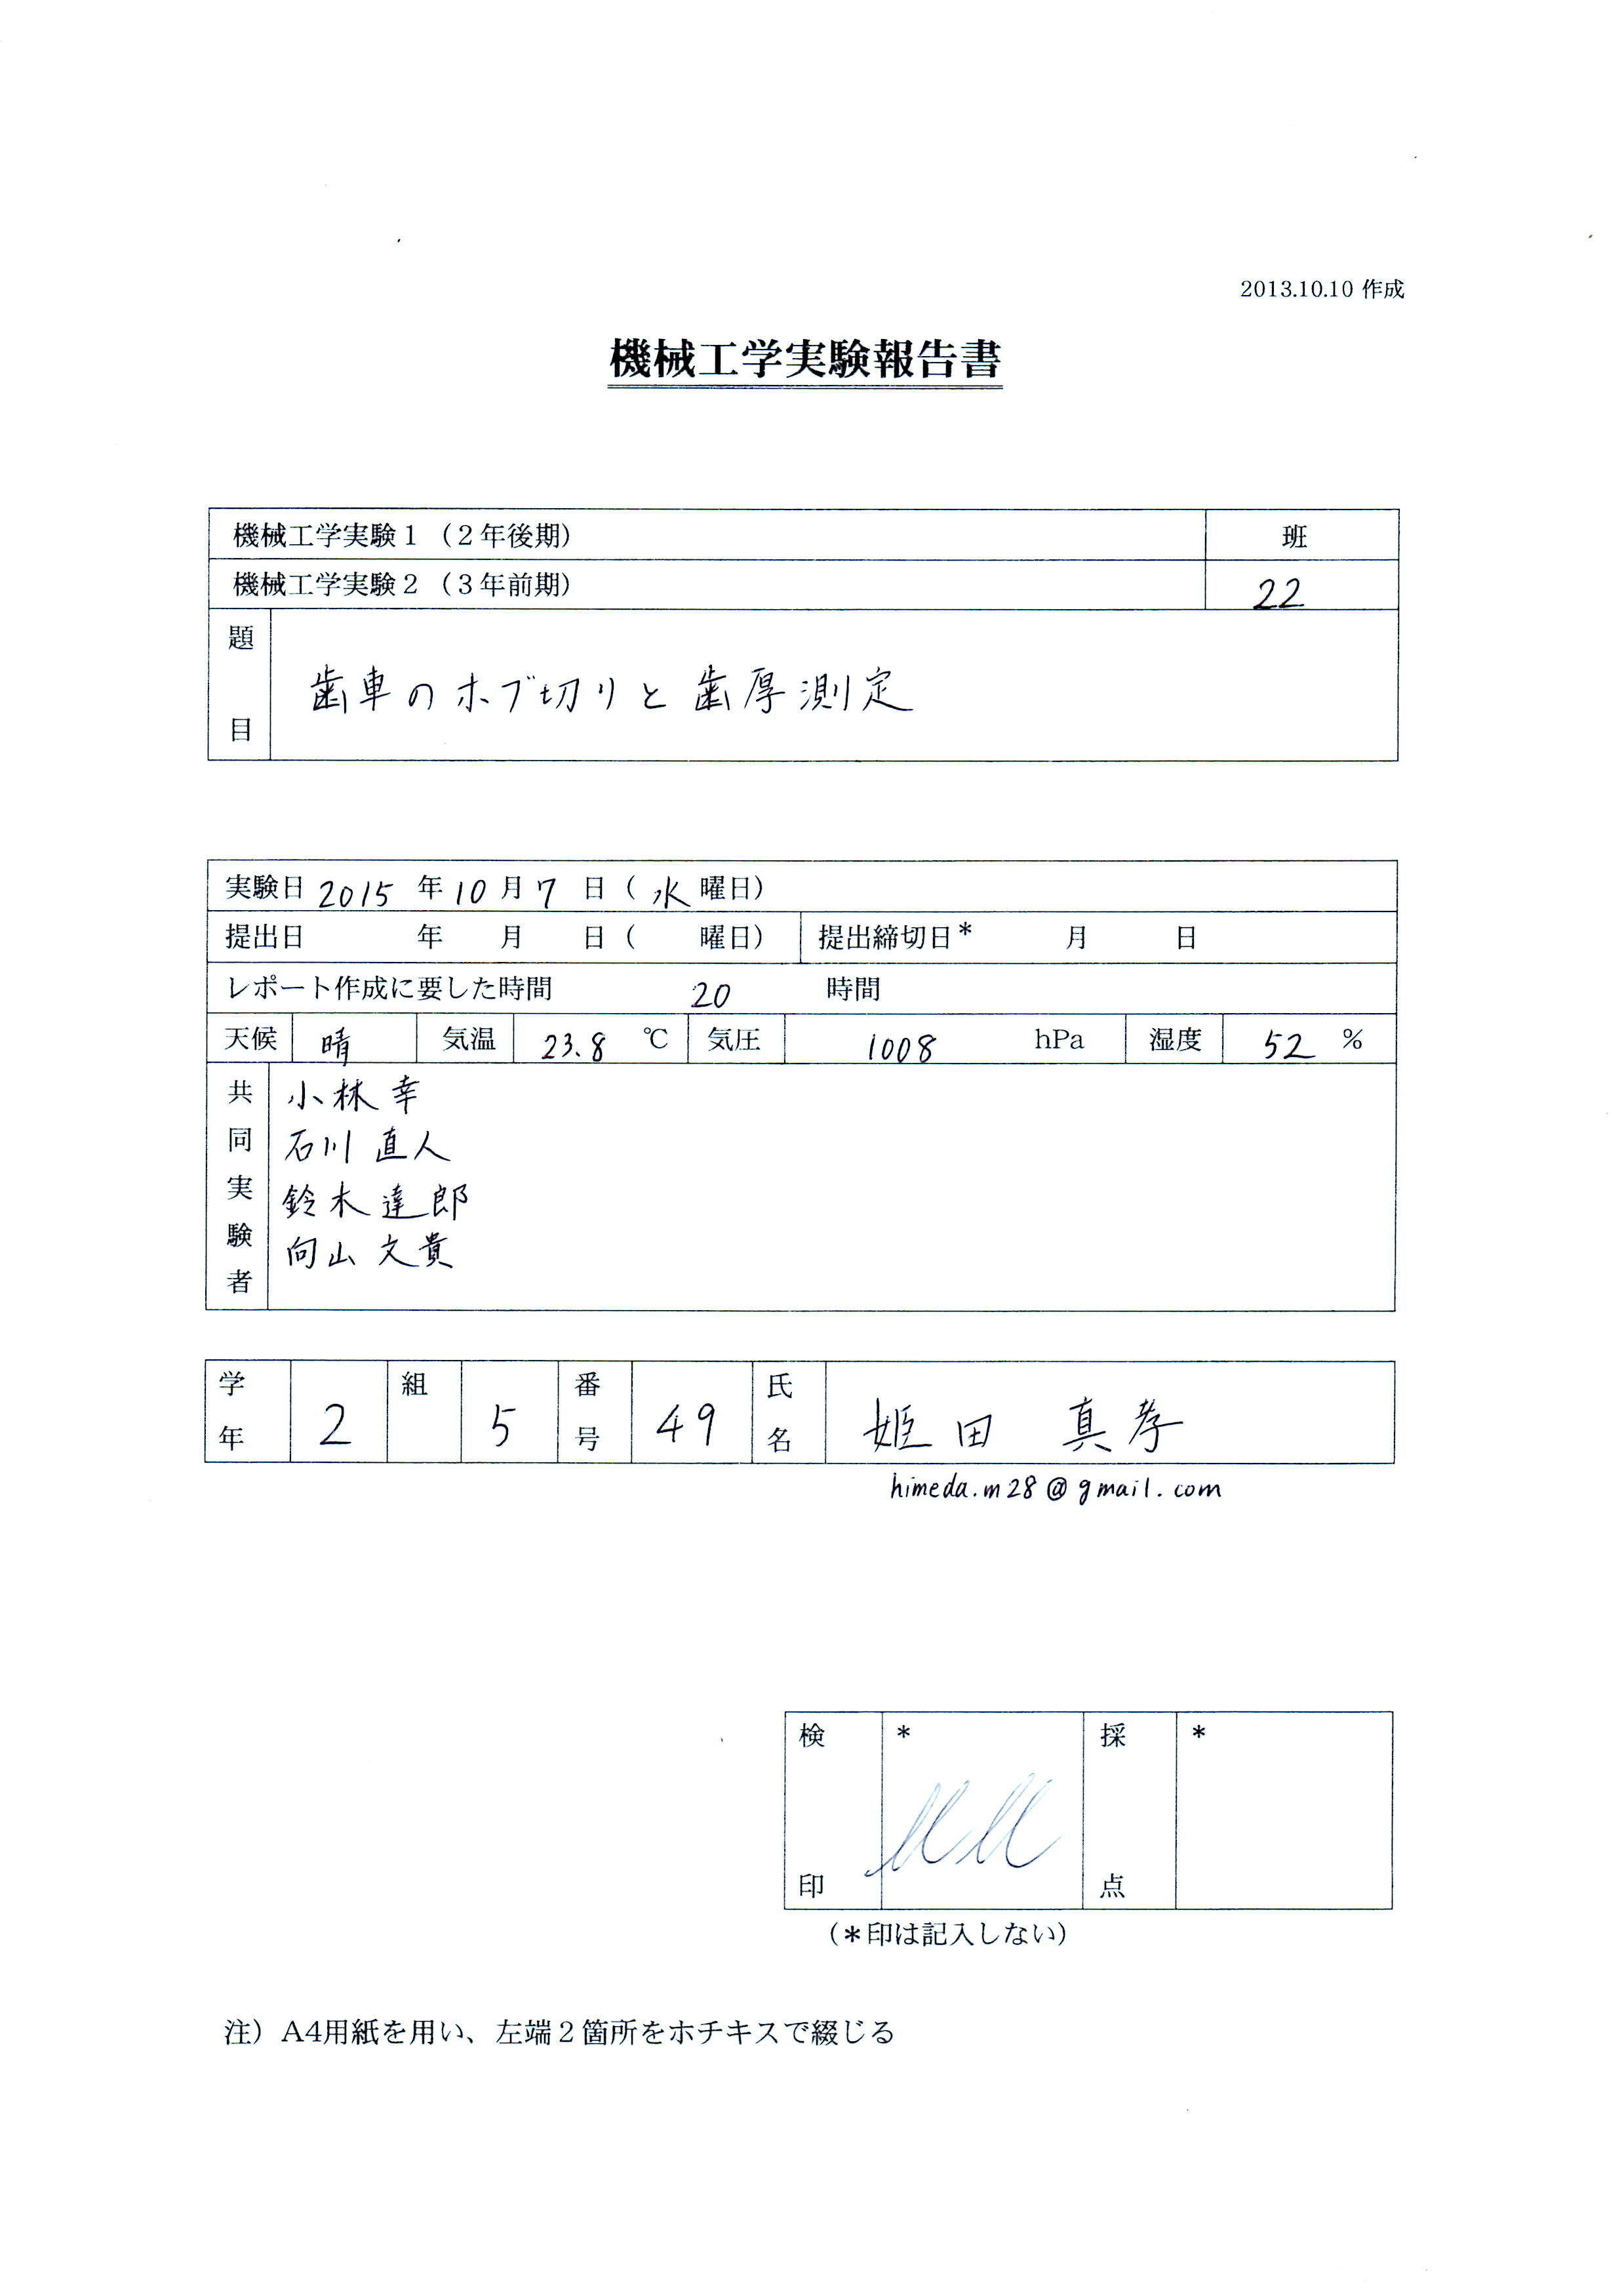 2013.10.10 作成
機械工学実験報告書
機械工学実験1（2年後期） 班
機械工学実験2（3年前期） 22
題目 歯車のホブ切りと歯厚測定
実験日 2015 年 10 月 7 日（ 水 曜日）
提出日 年 月 日（ 曜日） 提出締切日* 月 日
レポート作成に要した時間 20 時間
天候 晴 気温 23.8 ℃ 気圧 1008 hPa 湿度 52 %
共同実験者
小林 幸
石川 直人
鈴木 達郎
向山 文貴
学年 2 組 5 番号 49 氏名 姫田 真孝
himeda.m28@gmail.com
検印 * 採点 *
（*印は記入しない）
注）A4用紙を用い、左端2箇所をホチキスで綴じる